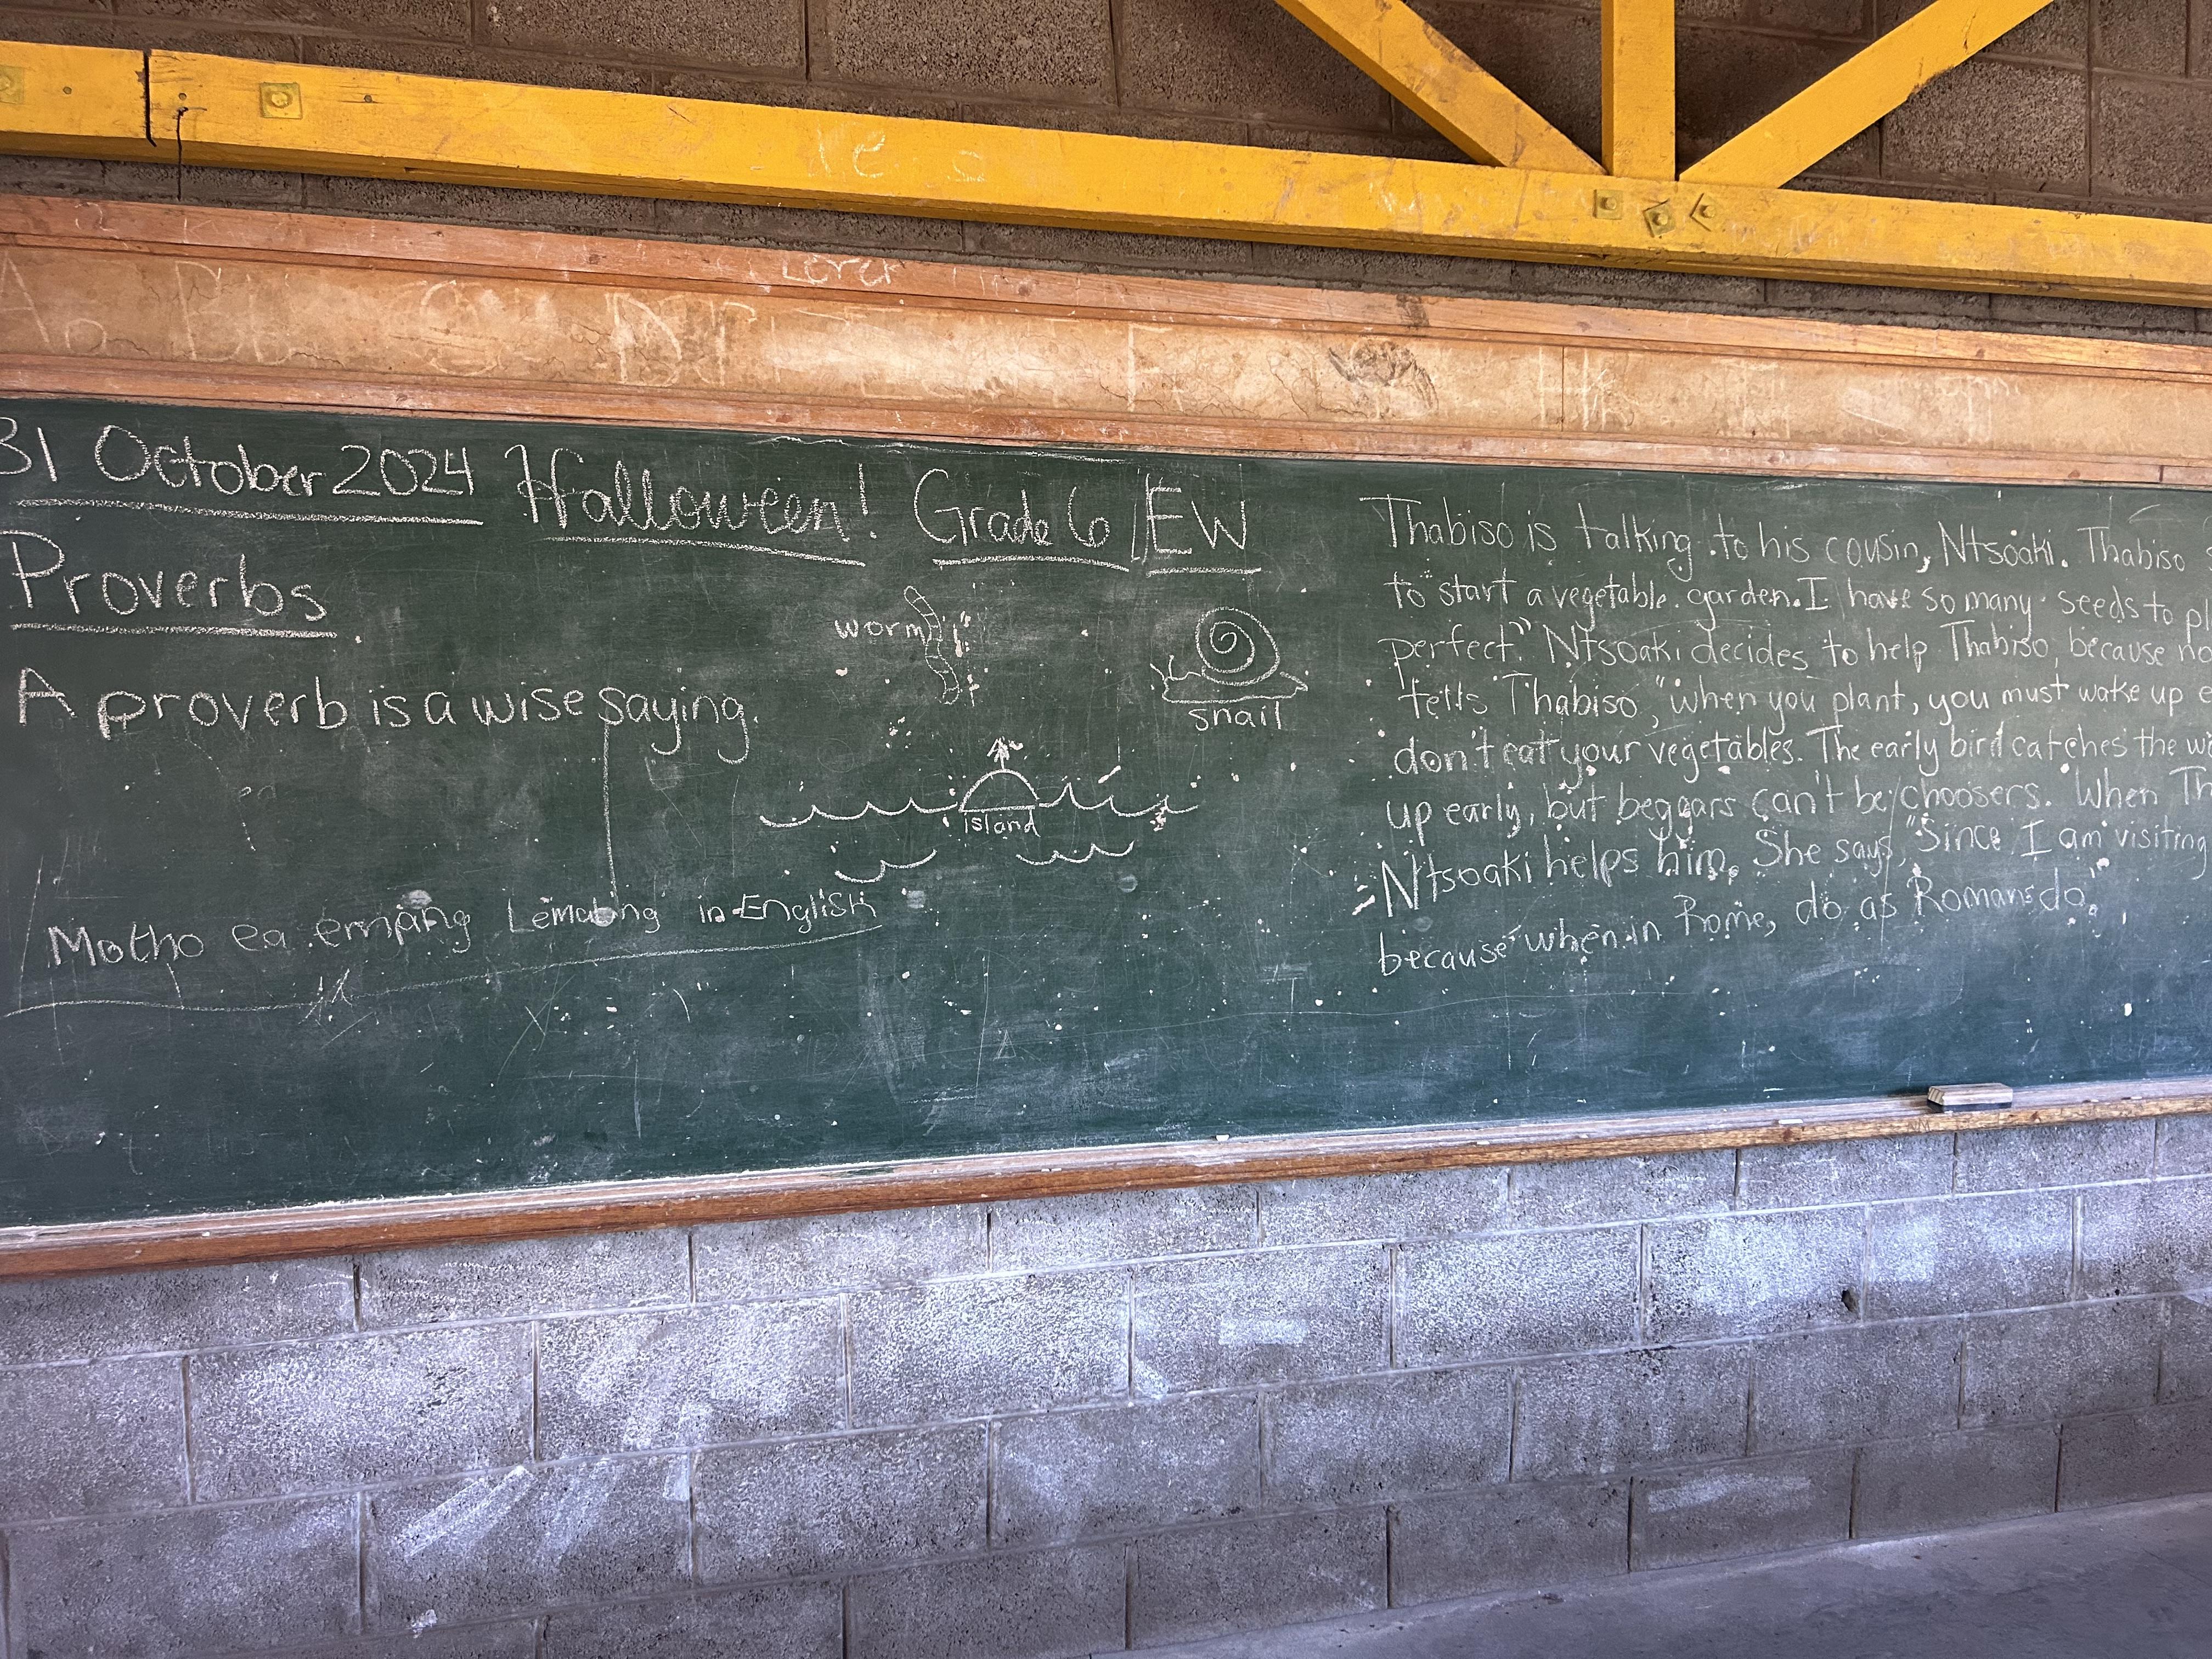 31 October 2024 Halloween! Grade 6 EW
Proverbs
A proverb is a wise saying.
worm
snail
island
Motho ea emang Lemating in English
Thabiso is talking to his cousin, Ntsoaki. Thabiso
to "start a vegetable garden. I have so many seeds to pl
perfect." Ntsoaki decides to help Thabiso, because no
tells Thabiso, "when you plant, you must wake up
don't eat your vegetables. The early bird catches the w
up early, but beggars can't be choosers. When Th
Ntsoaki helps him. She says, "Since I am visiting
because "when in Rome, do as Romans do."